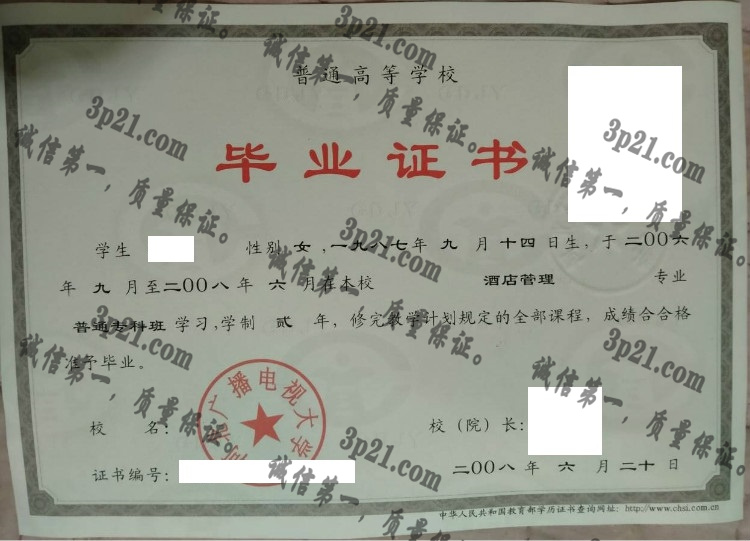 普通高等学校
毕业证书
学生 性别 女,一九八七年 九 月十四日生,于二〇〇六
年 九 月至二〇〇八年 六 月在本校 酒店管理 专业
普通专科班 学习,学制 贰 年,修完教学计划规定的全部课程,成绩合合格
准予毕业。
广播电视大学
校 名: 校（院）长:
证书编号: 二〇〇八年 六 月二十日
中华人民共和国教育部学历证书查询网址: http://www.chsi.com.cn
3p21.com
诚信第一,质量保证。
3p21.com
诚信第一,质量保证。
3p21.com
诚信第一,质量保证。
3p21.com
诚信第一,质量保证。
3p21.com
诚信第一,质量保证。
3p21.com
诚信第一,质量保证。
3p21.com
诚信第一,质量保证。
3p21.com
诚信第一,质量保证。